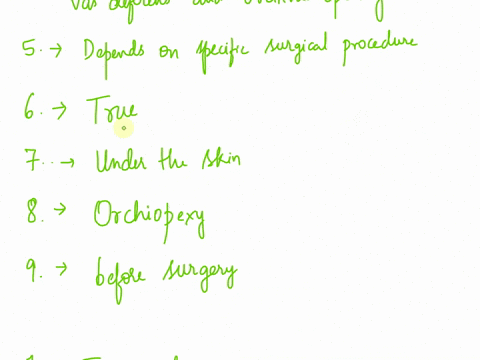 Vas deferens and
5. → Depends on specific surgical procedure
6. → True
7. → Under the skin
8. → Orchiopexy
9. → before surgery